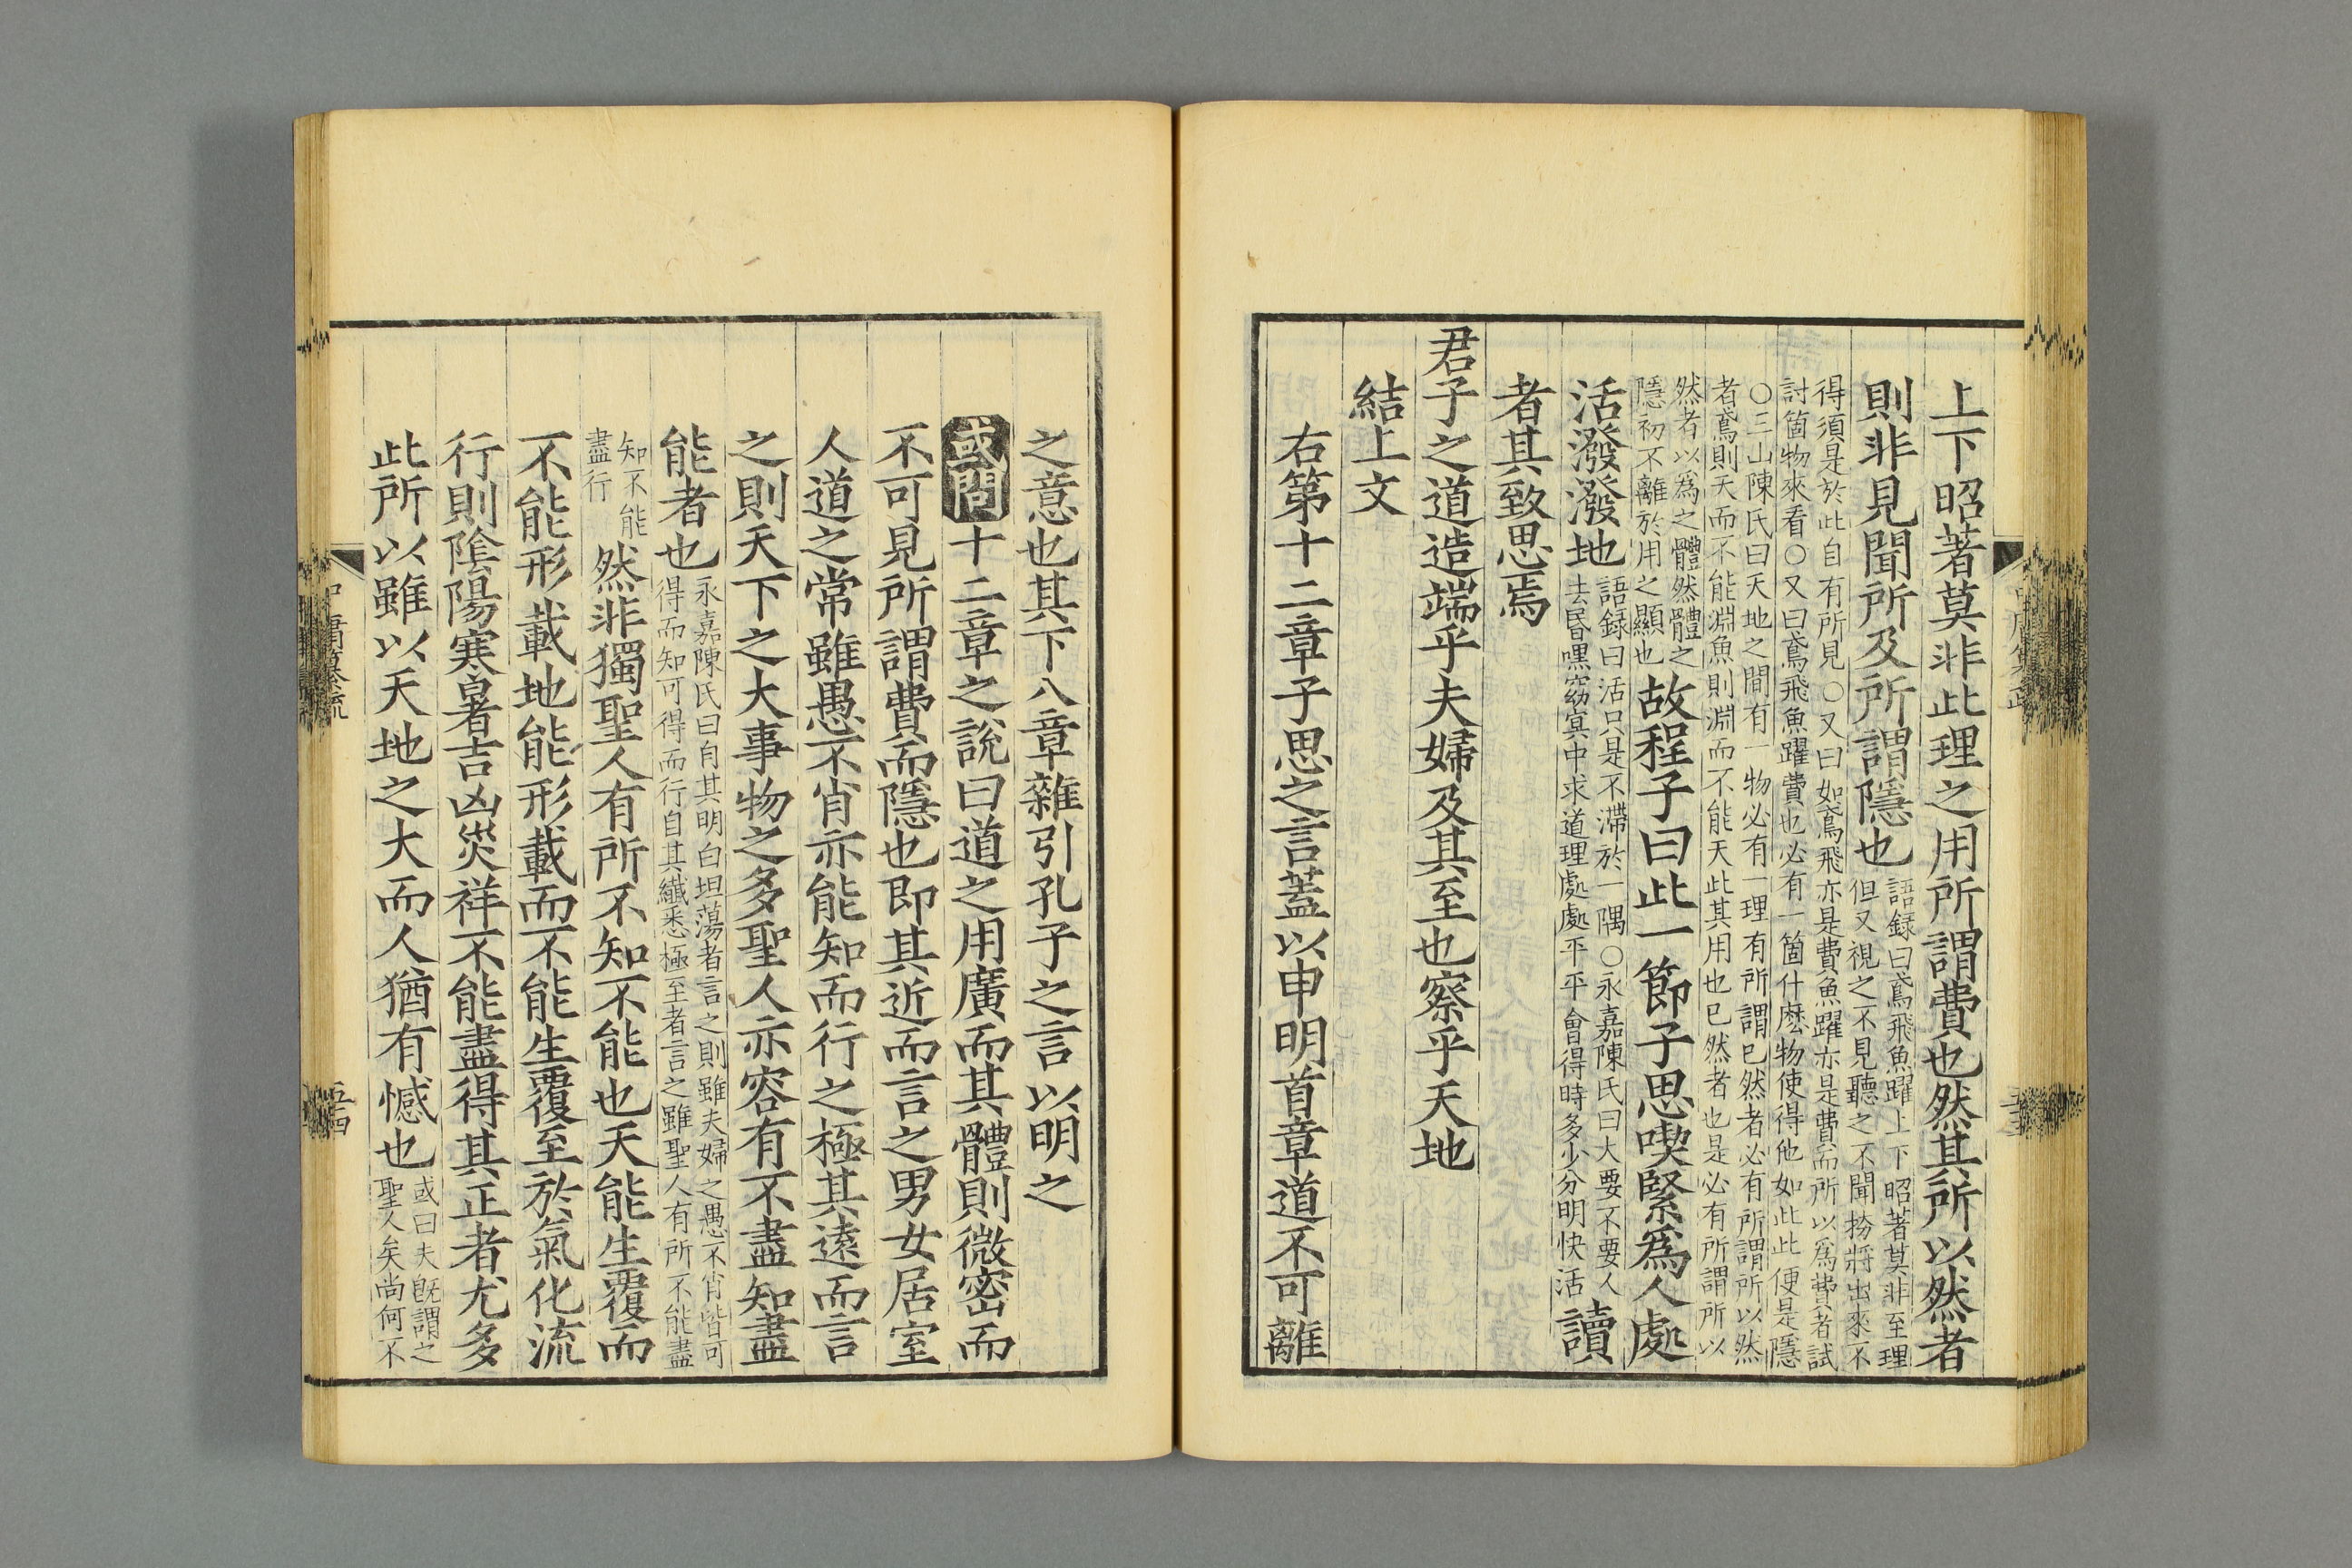 上下昭著莫非此理之用所謂費也然其所以然者
則非見聞所及所謂隱也
語錄曰鳶飛魚躍上下昭著莫非至理
但又視之不見聽之不聞扮將出來不
得須是於此自有所見○又曰如鳶飛亦是費魚躍亦是費而所以爲費者試
討箇物來看○又曰鳶飛魚躍費也必有一箇什麽物使得他如此此便是隱
○三山陳氏曰天地之間有一物必有一理有所謂已然者必有所謂所以然
者鳶則天而不能淵魚則淵而不能天此其用也已然者也是必有所謂所以
然者以爲之體然體之
隱初不離於用之顯也
故程子曰此一節子思喫緊爲人處
活潑潑地
語錄曰活只是不滯於一隅○永嘉陳氏曰大要不要人
去昏嘿窈冥中求道理處處平平會得時多少分明快活
讀
者其致思焉
君子之道造端乎夫婦及其至也察乎天地
結上文
右第十二章子思之言蓋以申明首章道不可離
之意也其下八章雜引孔子之言以明之
或問十二章之說曰道之用廣而其體則微密而
不可見所謂費而隱也即其近而言之男女居室
人道之常雖愚不肖亦能知而行之極其遠而言
之則天下之大事物之多聖人亦容有不盡知盡
能者也
永嘉陳氏曰自其明白坦蕩者言之則雖夫婦之愚不肖皆可
得而知可得而行自其纎悉極至者言之雖聖人有所不能盡
知不能
盡行
然非獨聖人有所不知不能也天能生覆而
不能形載地能形載而不能生覆至於氣化流
行則陰陽寒暑吉凶災祥不能盡得其正者尤多
此所以雖以天地之大而人猶有憾也
或曰夫旣謂之
聖人矣尚何不
中庸纂疏
五四